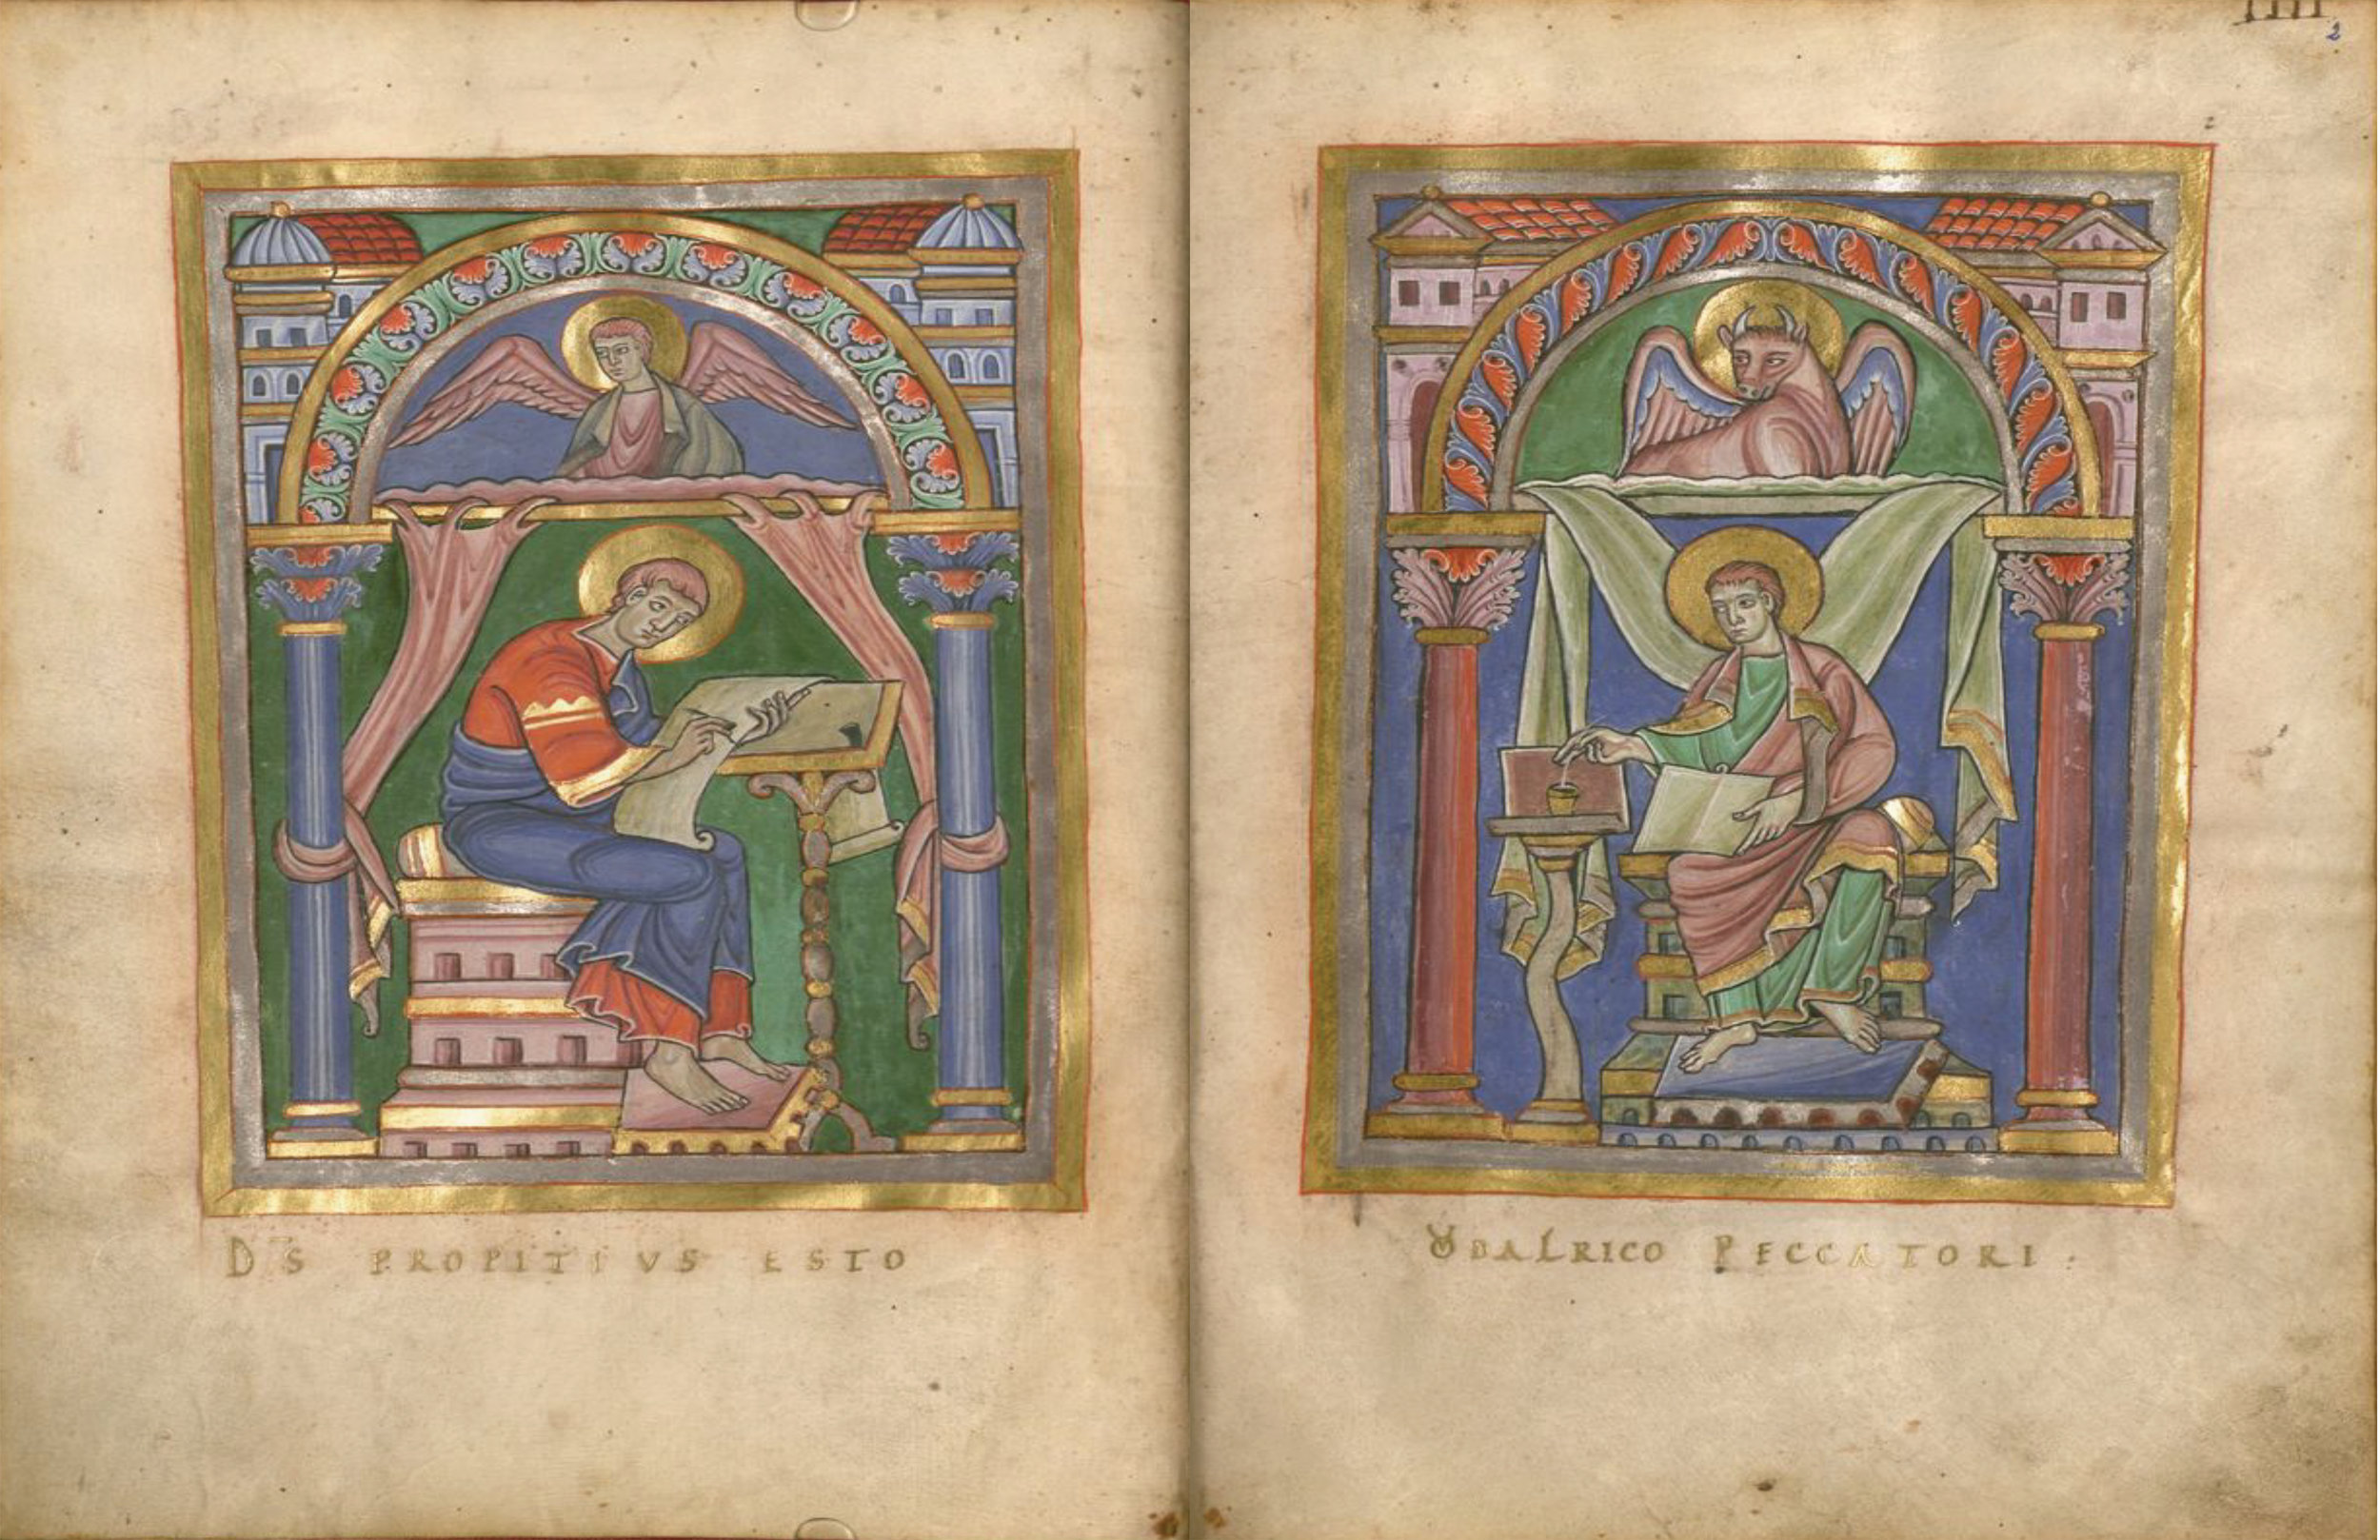 IIII
2
D̅S PROPITIVS ESTO
VDALRICO PECCATORI .